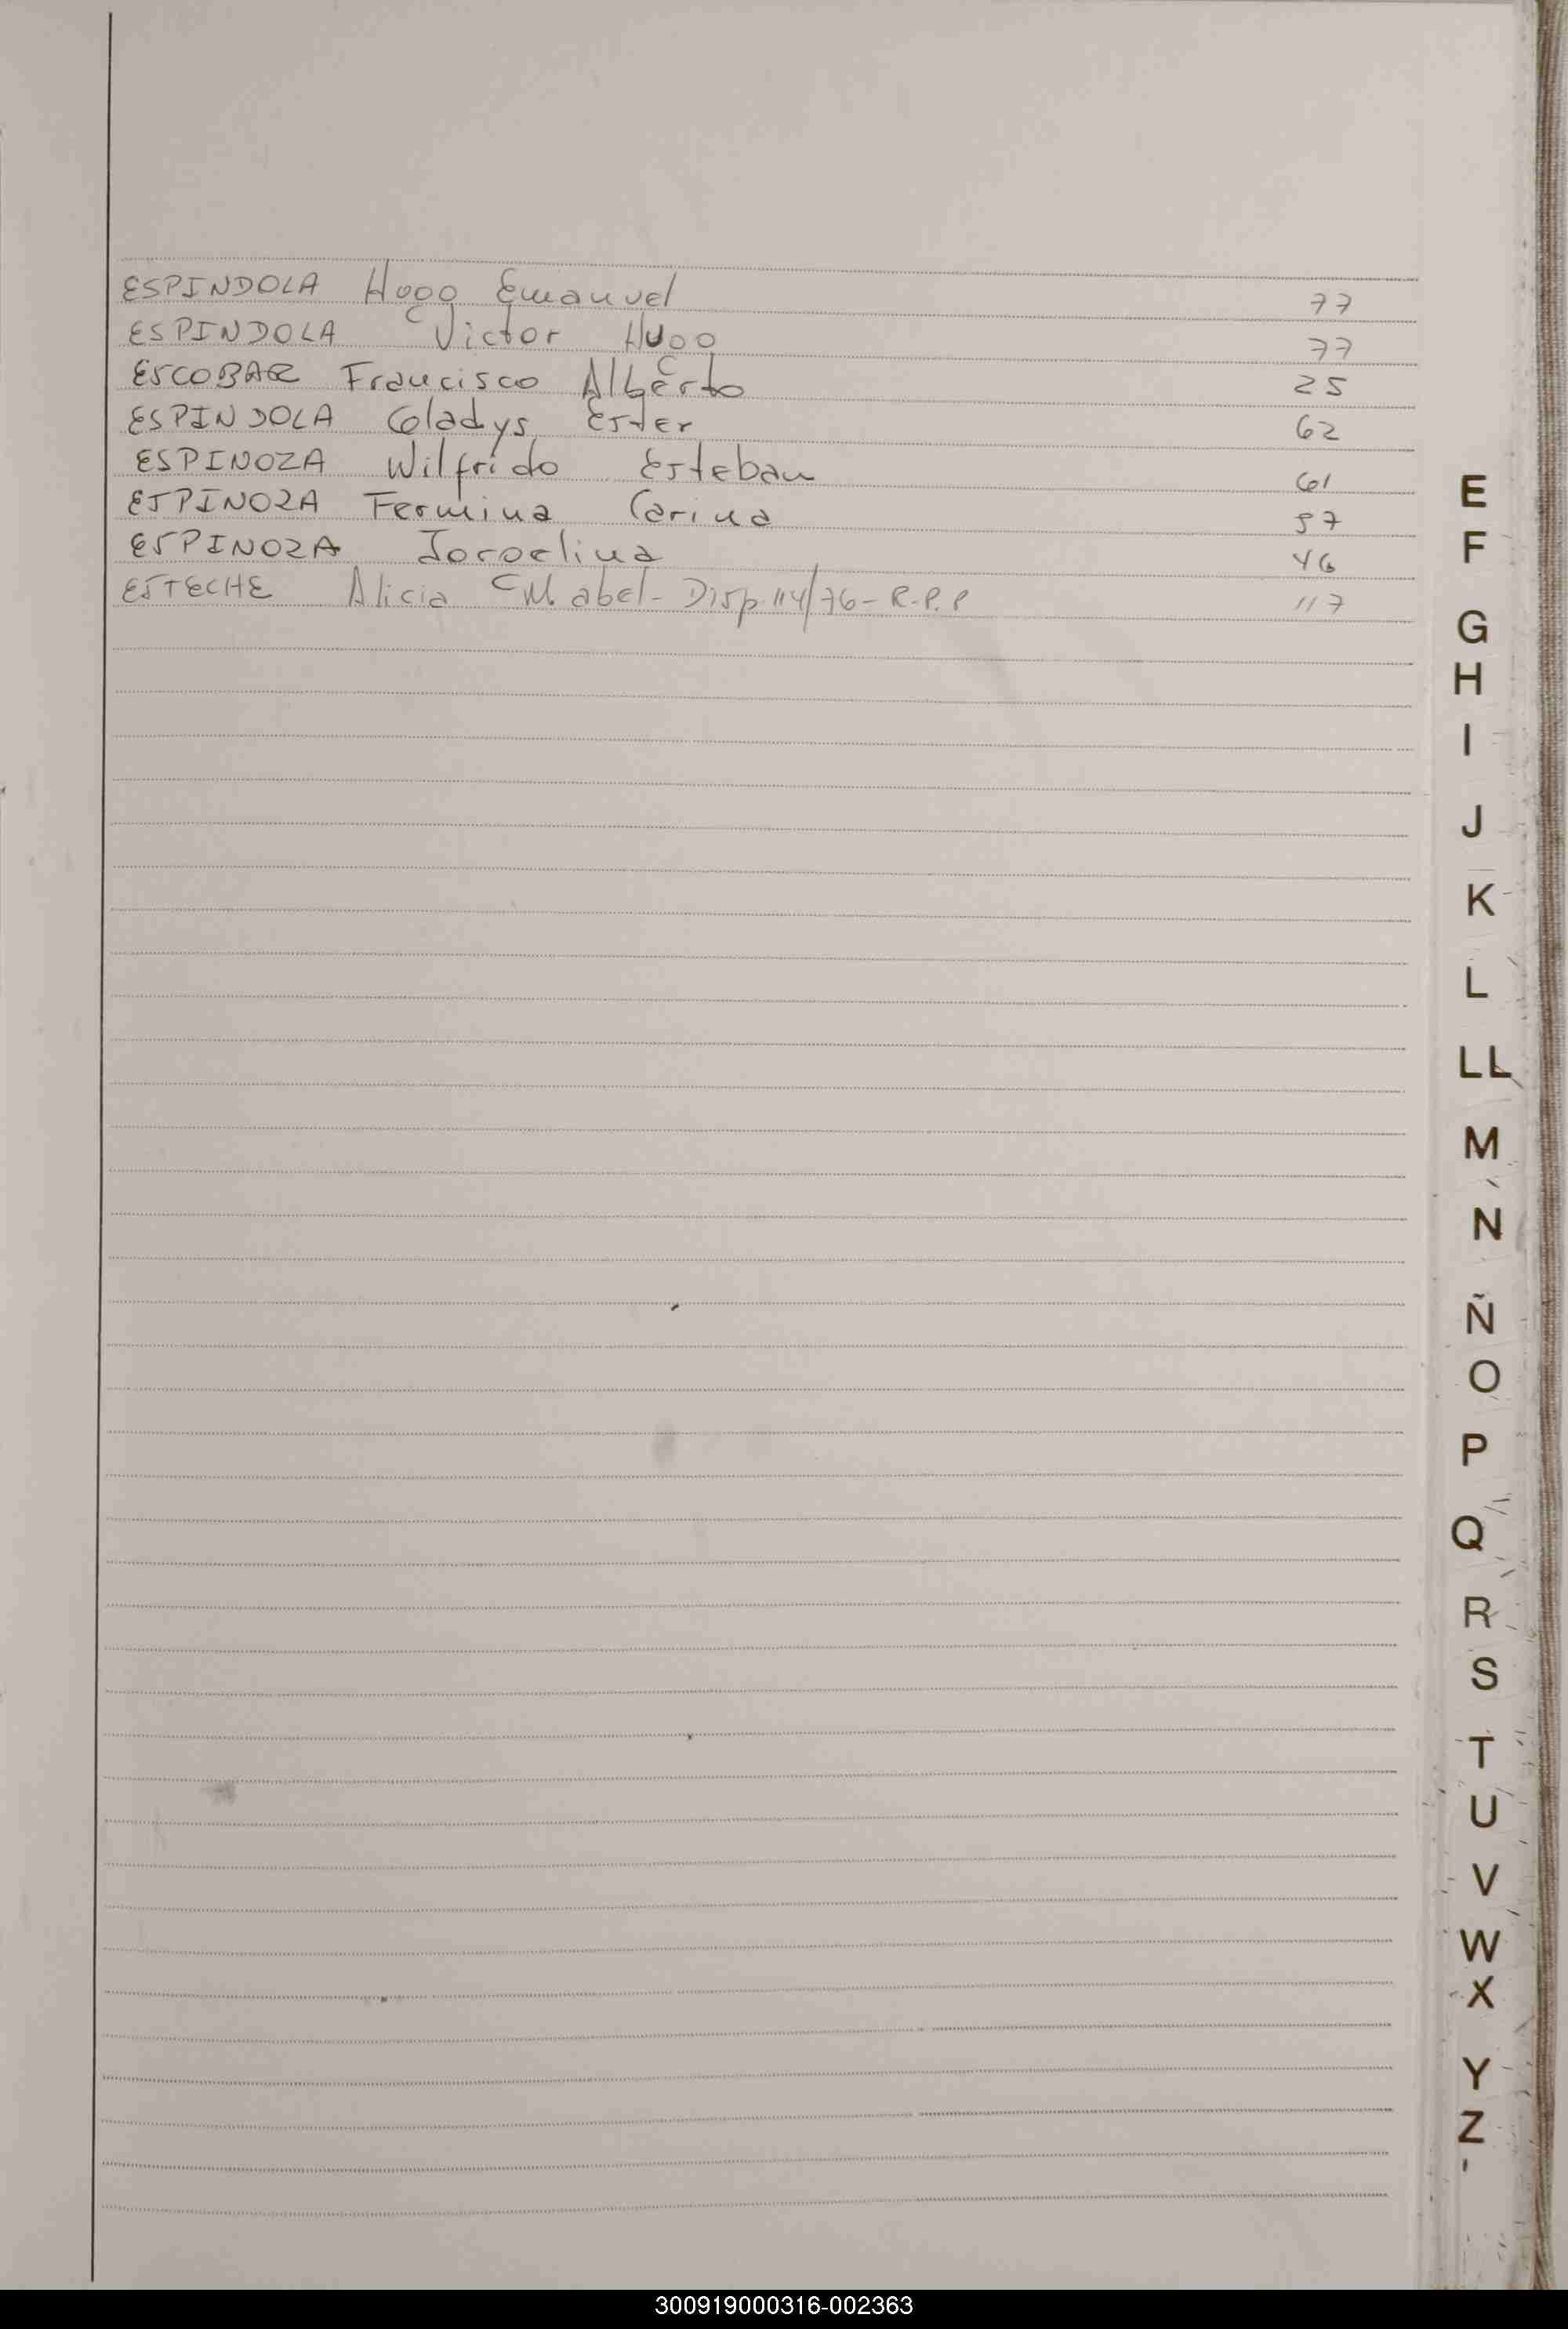 ESPINDOLA Hugo Emanuel 77
ESPINDOLA Victor Hugo 77
ESCOBAR Francisco Alberto 25
ESPINDOLA Gladys Ester 62
ESPINOZA Wilfrido Esteban 61
ESPINOZA Fermina Carina 57
ESPINOZA Jorgelina 46
ESTECHE Alicia Mabel - Disp. 114/76 - R.P.P 117
E
F
G
H
I
J
K
L
LL
M
N
Ñ
O
P
Q
R
S
T
U
V
W
X
Y
Z
300919000316-002363